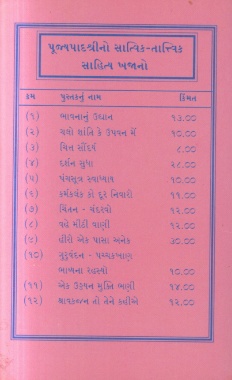 પૂજ્યપાદશ્રીનો સાત્વિક-તાત્ત્વિક
સાહિત્ય ખજાનો
ક્રમ પુસ્તકનું નામ કિંમત
(૧) ભાવનાનું ઉદ્યાન ૧૩.૦૦
(૨) ચલો શાંતિ કે ઉપવન મેં ૧૦.૦૦
(૩) ચિત્ત સૌંદર્ય ૮.૦૦
(૪) દર્શન સુધા ૨૮.૦૦
(૫) પંચસૂત્ર સ્વાધ્યાય ૧૦.૦૦
(૬) કર્મકર્વક કો દૂર નિવારો ૧૧.૦૦
(૭) ચિંતન - ચંદરવો ૧૨.૦૦
(૮) વહે મીઠી વાણી ૧૨.૦૦
(૯) હીરો એક પાસા અનેક ૩૦.૦૦
(૧૦) ગુરુવંદન - પચ્ચક્ખાણ
ભાષ્યના રહસ્યો ૧૦.૦૦
(૧૧) એક ઉડ્ડયન મુક્તિ ભણી ૧૪.૦૦
(૧૨) શ્રાવકજન તો તેને કહીએ ૧૨.૦૦